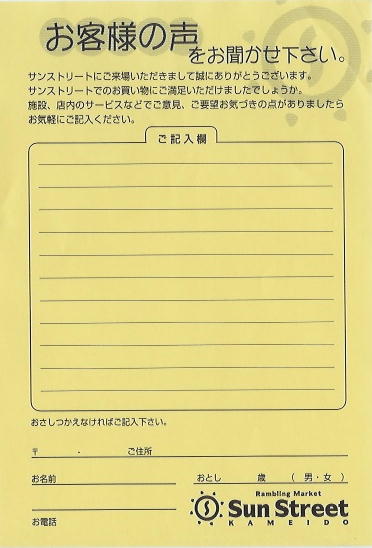 お客様の声
をお聞かせ下さい。
サンストリートにご来場いただきまして誠にありがとうございます。
サンストリートでのお買い物にご満足いただけましたでしょうか。
施設、店内のサービスなどでご意見、ご要望お気づきの点がありましたら
お気軽にご記入ください。
ご記入欄
おさしつかえなければご記入下さい。
〒 - ご住所
お名前 おとし 歳 ( 男・女 )
お電話
Rambling Market
Sun Street
KAMEIDO